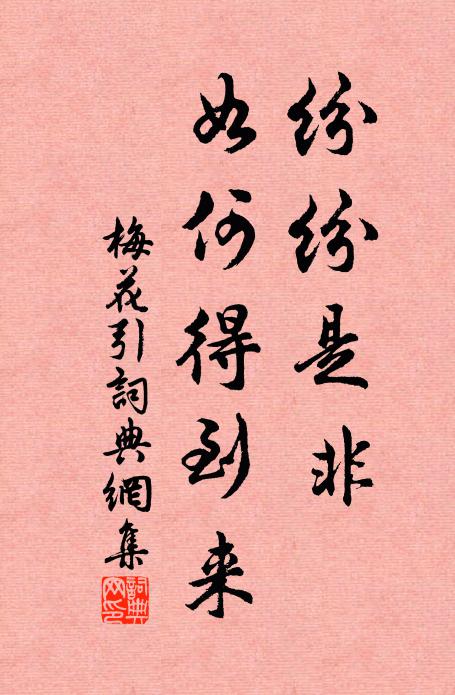 纷纷是非
如何得到来
梅花引詞典網集
詞典
网印